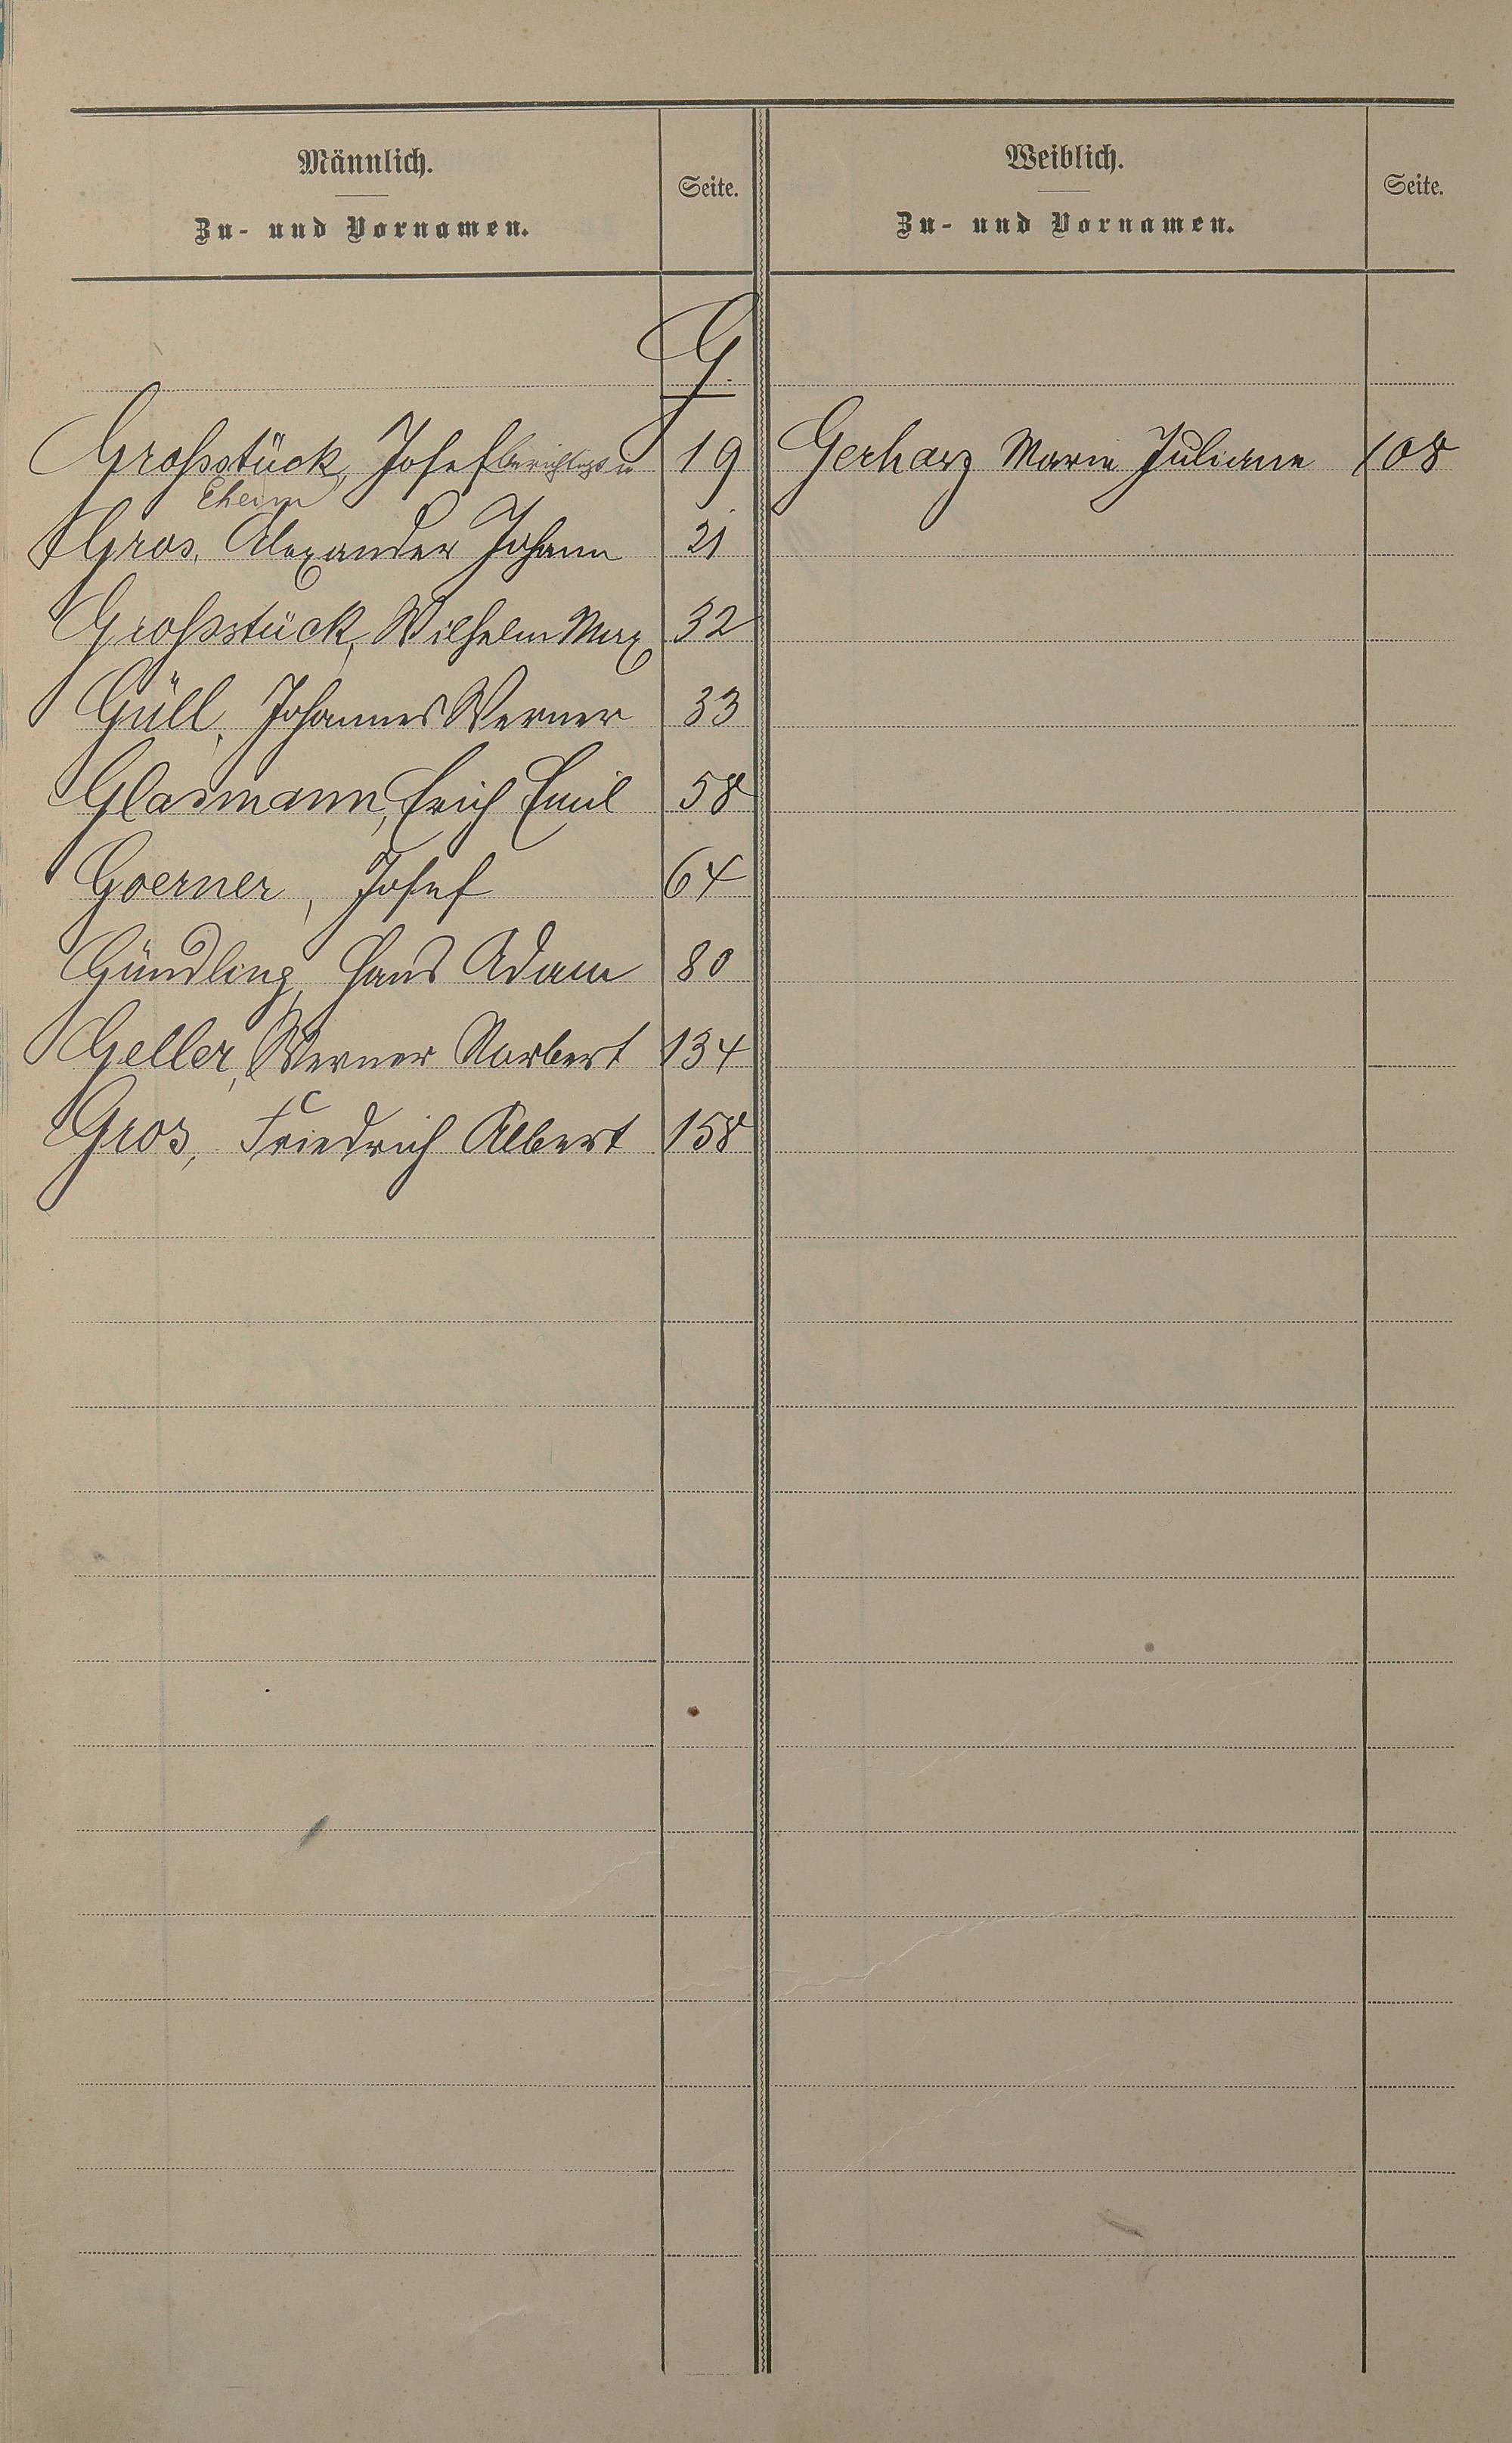 Männlich.
Zu- und Vornamen.
Seite.
Weiblich.
Zu- und Vornamen.
Seite.
G.
Großstück, Josef 19 Gerharz Marie Juliane 108
Gros, Alexander Johann 21
Großstück, Wilhelm Max 32
Güll, Johannes Werner 33
Glasmann, Erich Emil 58
Goerner, Josef 64
Gündling, Hans Adam 80
Geller, Werner Norbert 134
Gros, Friedrich Albert 158